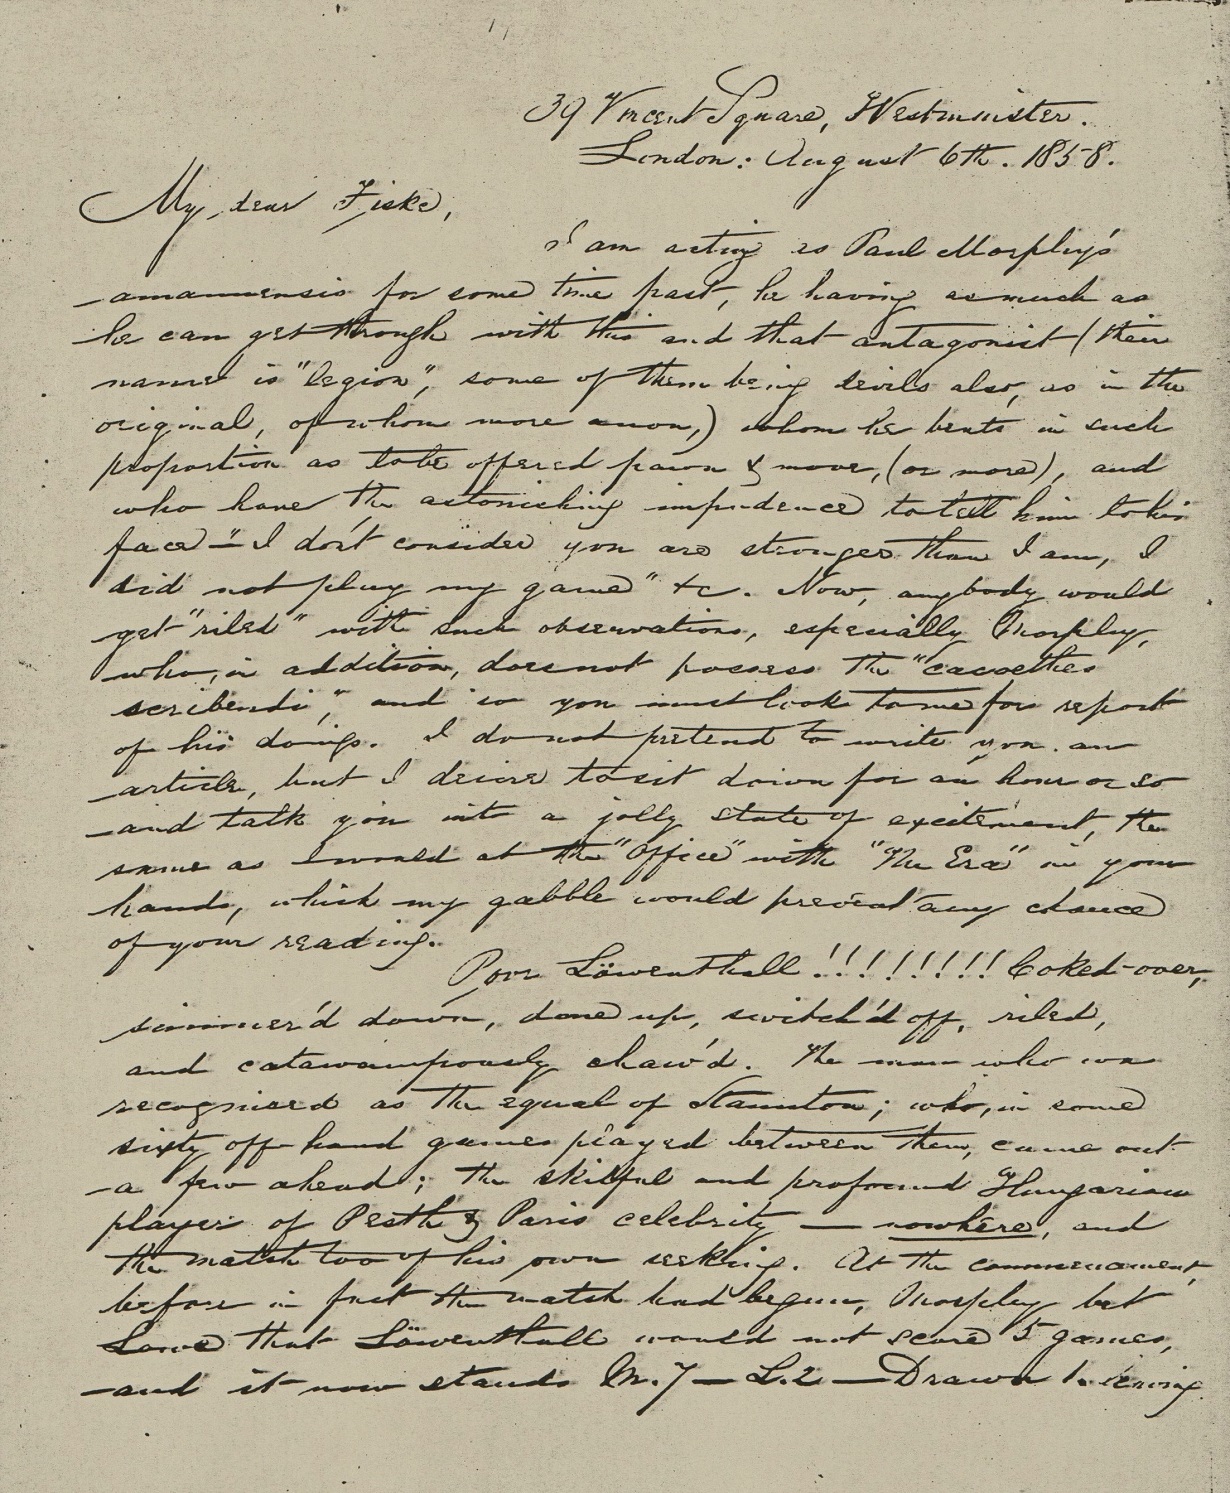 39 Vincent Square, Westminster.
London: August 6th. 1858.
My dear Fiske,
I am acting as Paul Morphy's
amanuensis for some time past, he having as much as
he can get through with this and that antagonist (their
name is "legion", some of them being devils also, as in the
original, of whom more anon,) whom he beats in such
proportion as to be offered pawn & move, (or more), and
who have the astonishing impudence to tell him to his
face — "I don't consider you are stronger than I am, I
did not play my game" &c. Now, anybody would
get "riled" with such observations, especially Morphy,
who, in addition, does not possess the "cacoethes
scribendi", and so you must look to me for report
of his doings. I do not pretend to write you an
article, but I desire to sit down for an hour or so
and talk you into a jolly state of excitement, the
same as I would at the "Office" with "The Era" in your
hands, which my gabble would prevent any chance
of your reading.
Poor Löwenthall !!!!!!!! Coked-over,
simmer'd down, done up, switch'd off, riled,
and catawampously chaw'd. The man who was
recognised as the equal of Staunton; who, in some
sixty off hand games played between them, came out
a few ahead; the skilful and profound Hungarian
player of Pesth & Paris celebrity — nowhere, and
the match too of his own seeking. At the commencement,
before in fact the match had begun, Morphy bet
Lowe that Löwenthall would not score 5 games,
and it now stands M. 7 — L. 2 — Drawn 1.